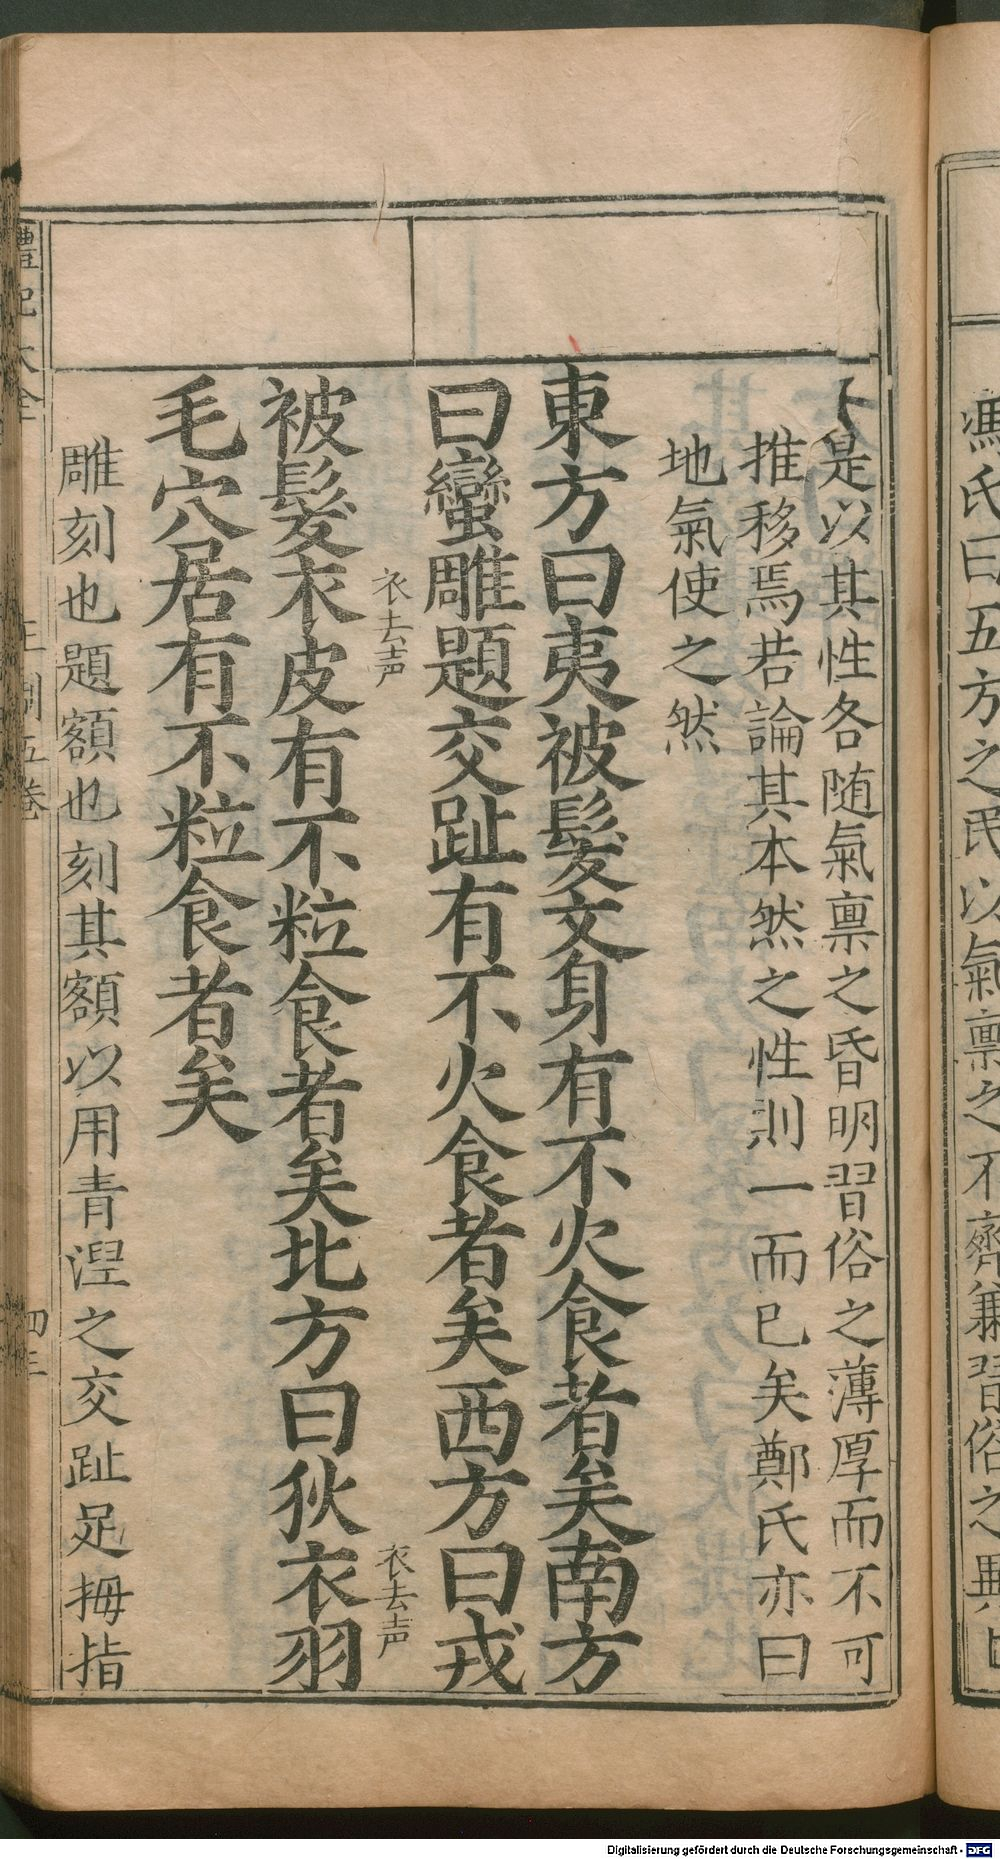 馮氏曰五方之民以氣禀之不齊兼習俗之異
是以其性各随氣禀之昏明習俗之薄厚而不可
推移焉若論其本然之性則一而已矣鄭氏亦曰
地氣使之然
東方曰夷被髮文身有不火食者矣南方
曰蠻雕題交趾有不火食者矣西方曰戎
衣去声
衣去声
被髮衣皮有不粒食者矣北方曰狄衣羽
毛穴居有不粒食者矣
雕刻也題額也刻其額以用青涅之交趾足拇指
禮記大全
王制五卷
四三
Digitalisierung gefördert durch die Deutsche Forschungsgemeinschaft - DFG